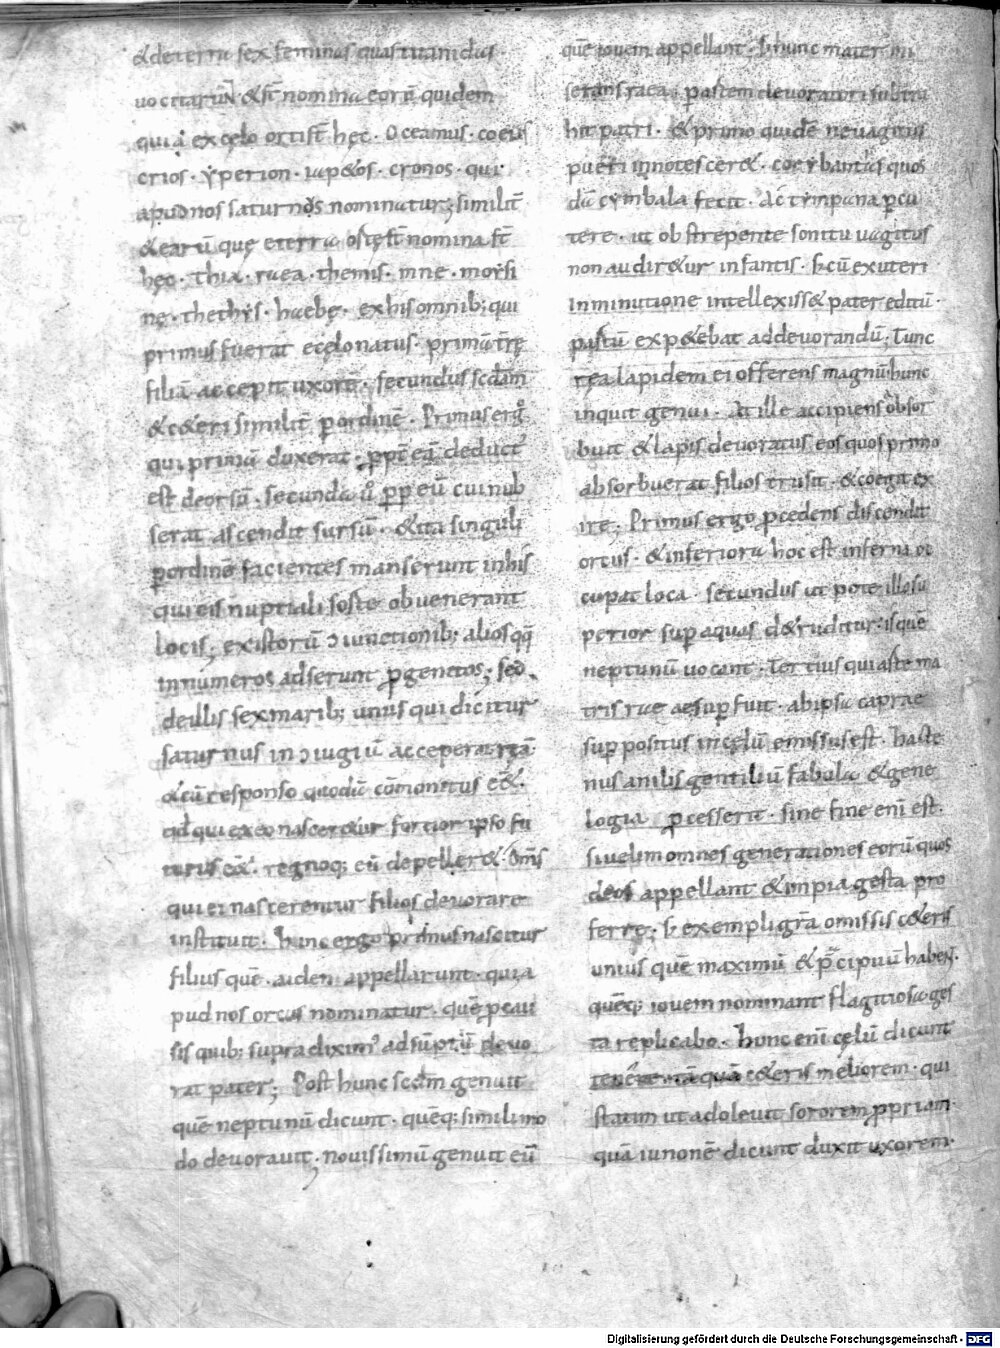 & de terra sex feminas quas titanidas
uocitarunt & st̄ nomina eorū quidem
qui a excelo orti st̄ hęc · Oceamus · coeus
crios · yperion · iap&os · cronos · qui
apud nos saturnos nominatur; similit̄
& earū quę e terra ostę st̄ nomina st̄
hęc · thia · raea · themis · mne · mosi
ne · thethys · haebe · ex his omnib; qui
primus fuerat e celo natus · primā t̄rę
filiā accepit uxorē · secundus scdam
& c&eri similit̄ p ordinē · Primus ergo
qui primā duxerat · ppt̄ eā deduct'
est deorsū · secundā ů pp eū cui nub
serat ascendit sursū · & ita singuli
p ordinē facientes manserunt in his
qui eis nuptiali sorte obuenerant
locis; ex istorū ɔiunctionib; alios qq
innumeros adserunt pgenitos; sed
de illis sex marib; unus qui dicitur
saturnus in ɔiugiū acceperat reā
& cū responso quodā cōmonitus e&
qd qui ex eo nascer&ur fortior ipso fu
turus e& · regnoq; eū depeller& · om̄s
qui ei nascerentur filios deuorare
instituit · hinc ergo primus nascitur
filius quē · aiden appellarunt · qui a
pud nos orcus nominatur · quē p cau
sis quib; supra dixim' adsūptū deuo
rat pater; Post hunc scdm genuit
quē neptunū dicunt · quēq; simili mo
do deuorauit; nouissimū genuit eū
quē iouem appellant · s; hunc mater mi
serans raea · pastem deuoratori subtra
hit patri · & primo quidē ne uagitus
pueri innotescer& · corybantas quos
dā cymbala fecit · ac tympana pcu
tere · ut obstrepente sonitu uagitus
non audir&ur infantis · s; cū ex uteri
inminutione intellexiss& pater editū
pastū exp&ebat ad deuorandū; Tunc
rea lapidem ei offerens magnū hunc
inquit genui · At ille accipiens obsor
buit & lapis deuoratus eos quos primo
absorbuerat filios trusit · & coegit ex
ire; Primus ergo pcedens discendit
orcus · & inferiora hoc est inferna oc
cupat loca · secundus ut pote illo su
perior sup aquas d&ruditur · is quē
neptunū uocant · Tertius qui aste ma
tris rae aesup fuit · ab ipsa caprae
suppositus in celū emissus est · hacte
nus anilis gentiliū fabula & gene
logia pcesserit · sine fine eni est ·
si uelim omnes generationes eorū quos
deos appellant & impia gesta pro
ferre · s; exempli grā omissis c&eris
unius quē maximū & p̄cipuū haben̄ ·
quēq; iouem nominant flagitiosa ges
ta replicabo · hunc eni celū dicunt
tenere tāquā c&eris meliorem · qui
statim ut adoleuit sororem ppriam
quā iunonē dicunt duxit uxorem ·
Digitalisierung gefördert durch die Deutsche Forschungsgemeinschaft · DFG